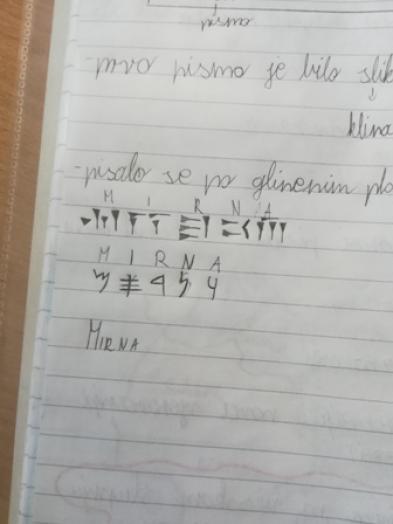 pismo
-prvo pismo je bilo slik
klina
-pisalo se po glinenim plo
M I R N A
𐎷 𐎡 𐎼 𐎴 𐎠
M I R N A
MIRNA